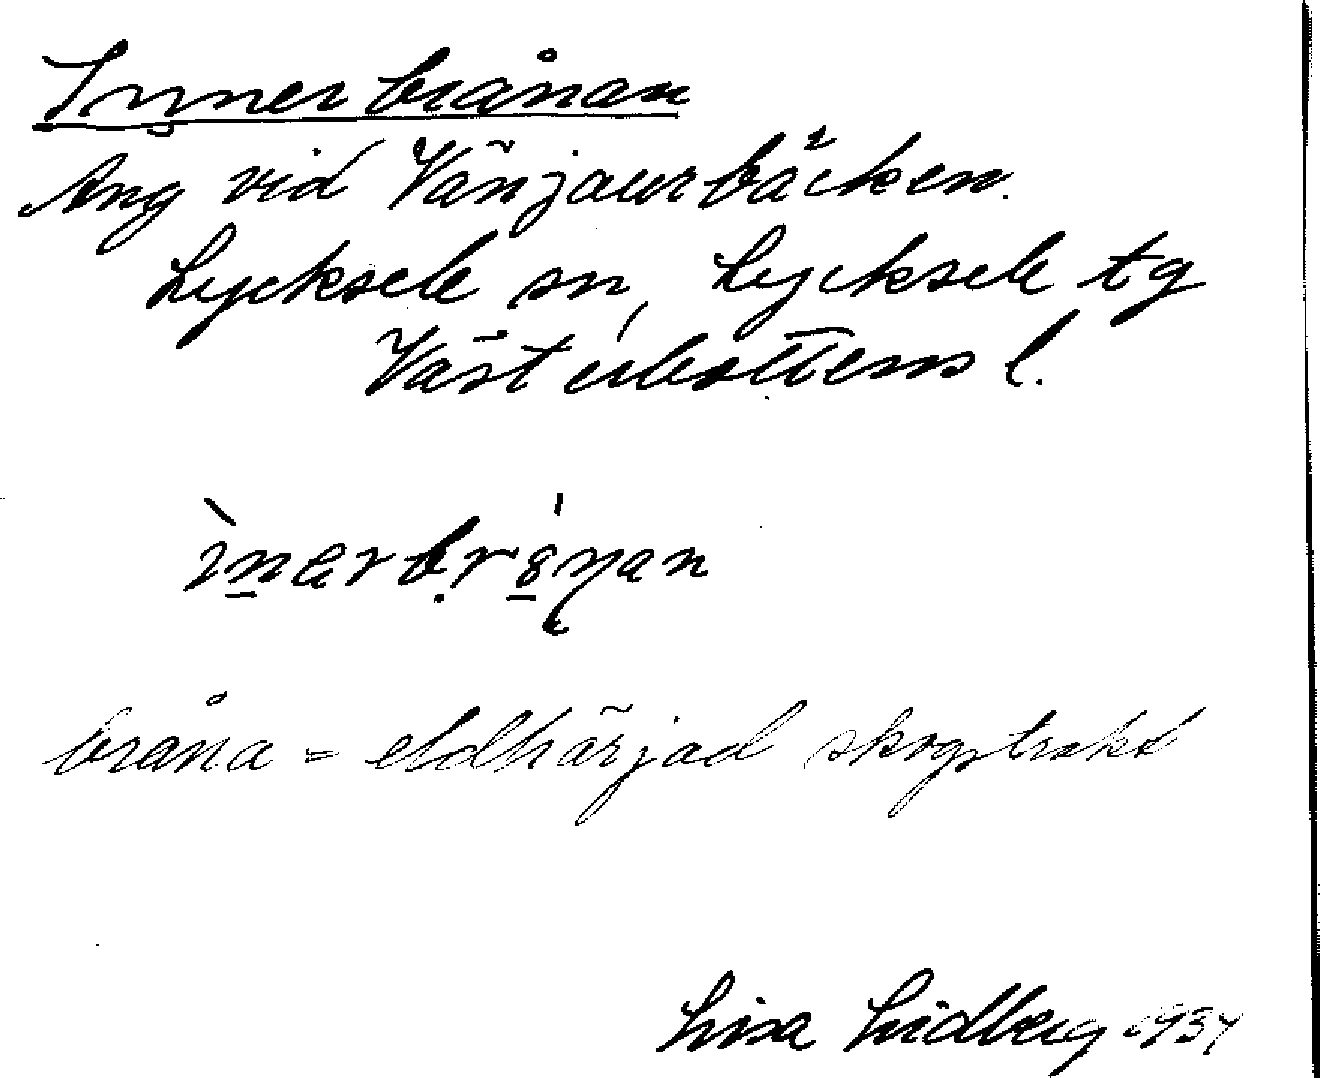 Innerbrånan
Äng vid Vänjaurbäcken.
Lycksele sn, Lycksele tg
Västerbottens l.
bråna = eldhärjad skogstrakt
Lisa Lidberg 1934